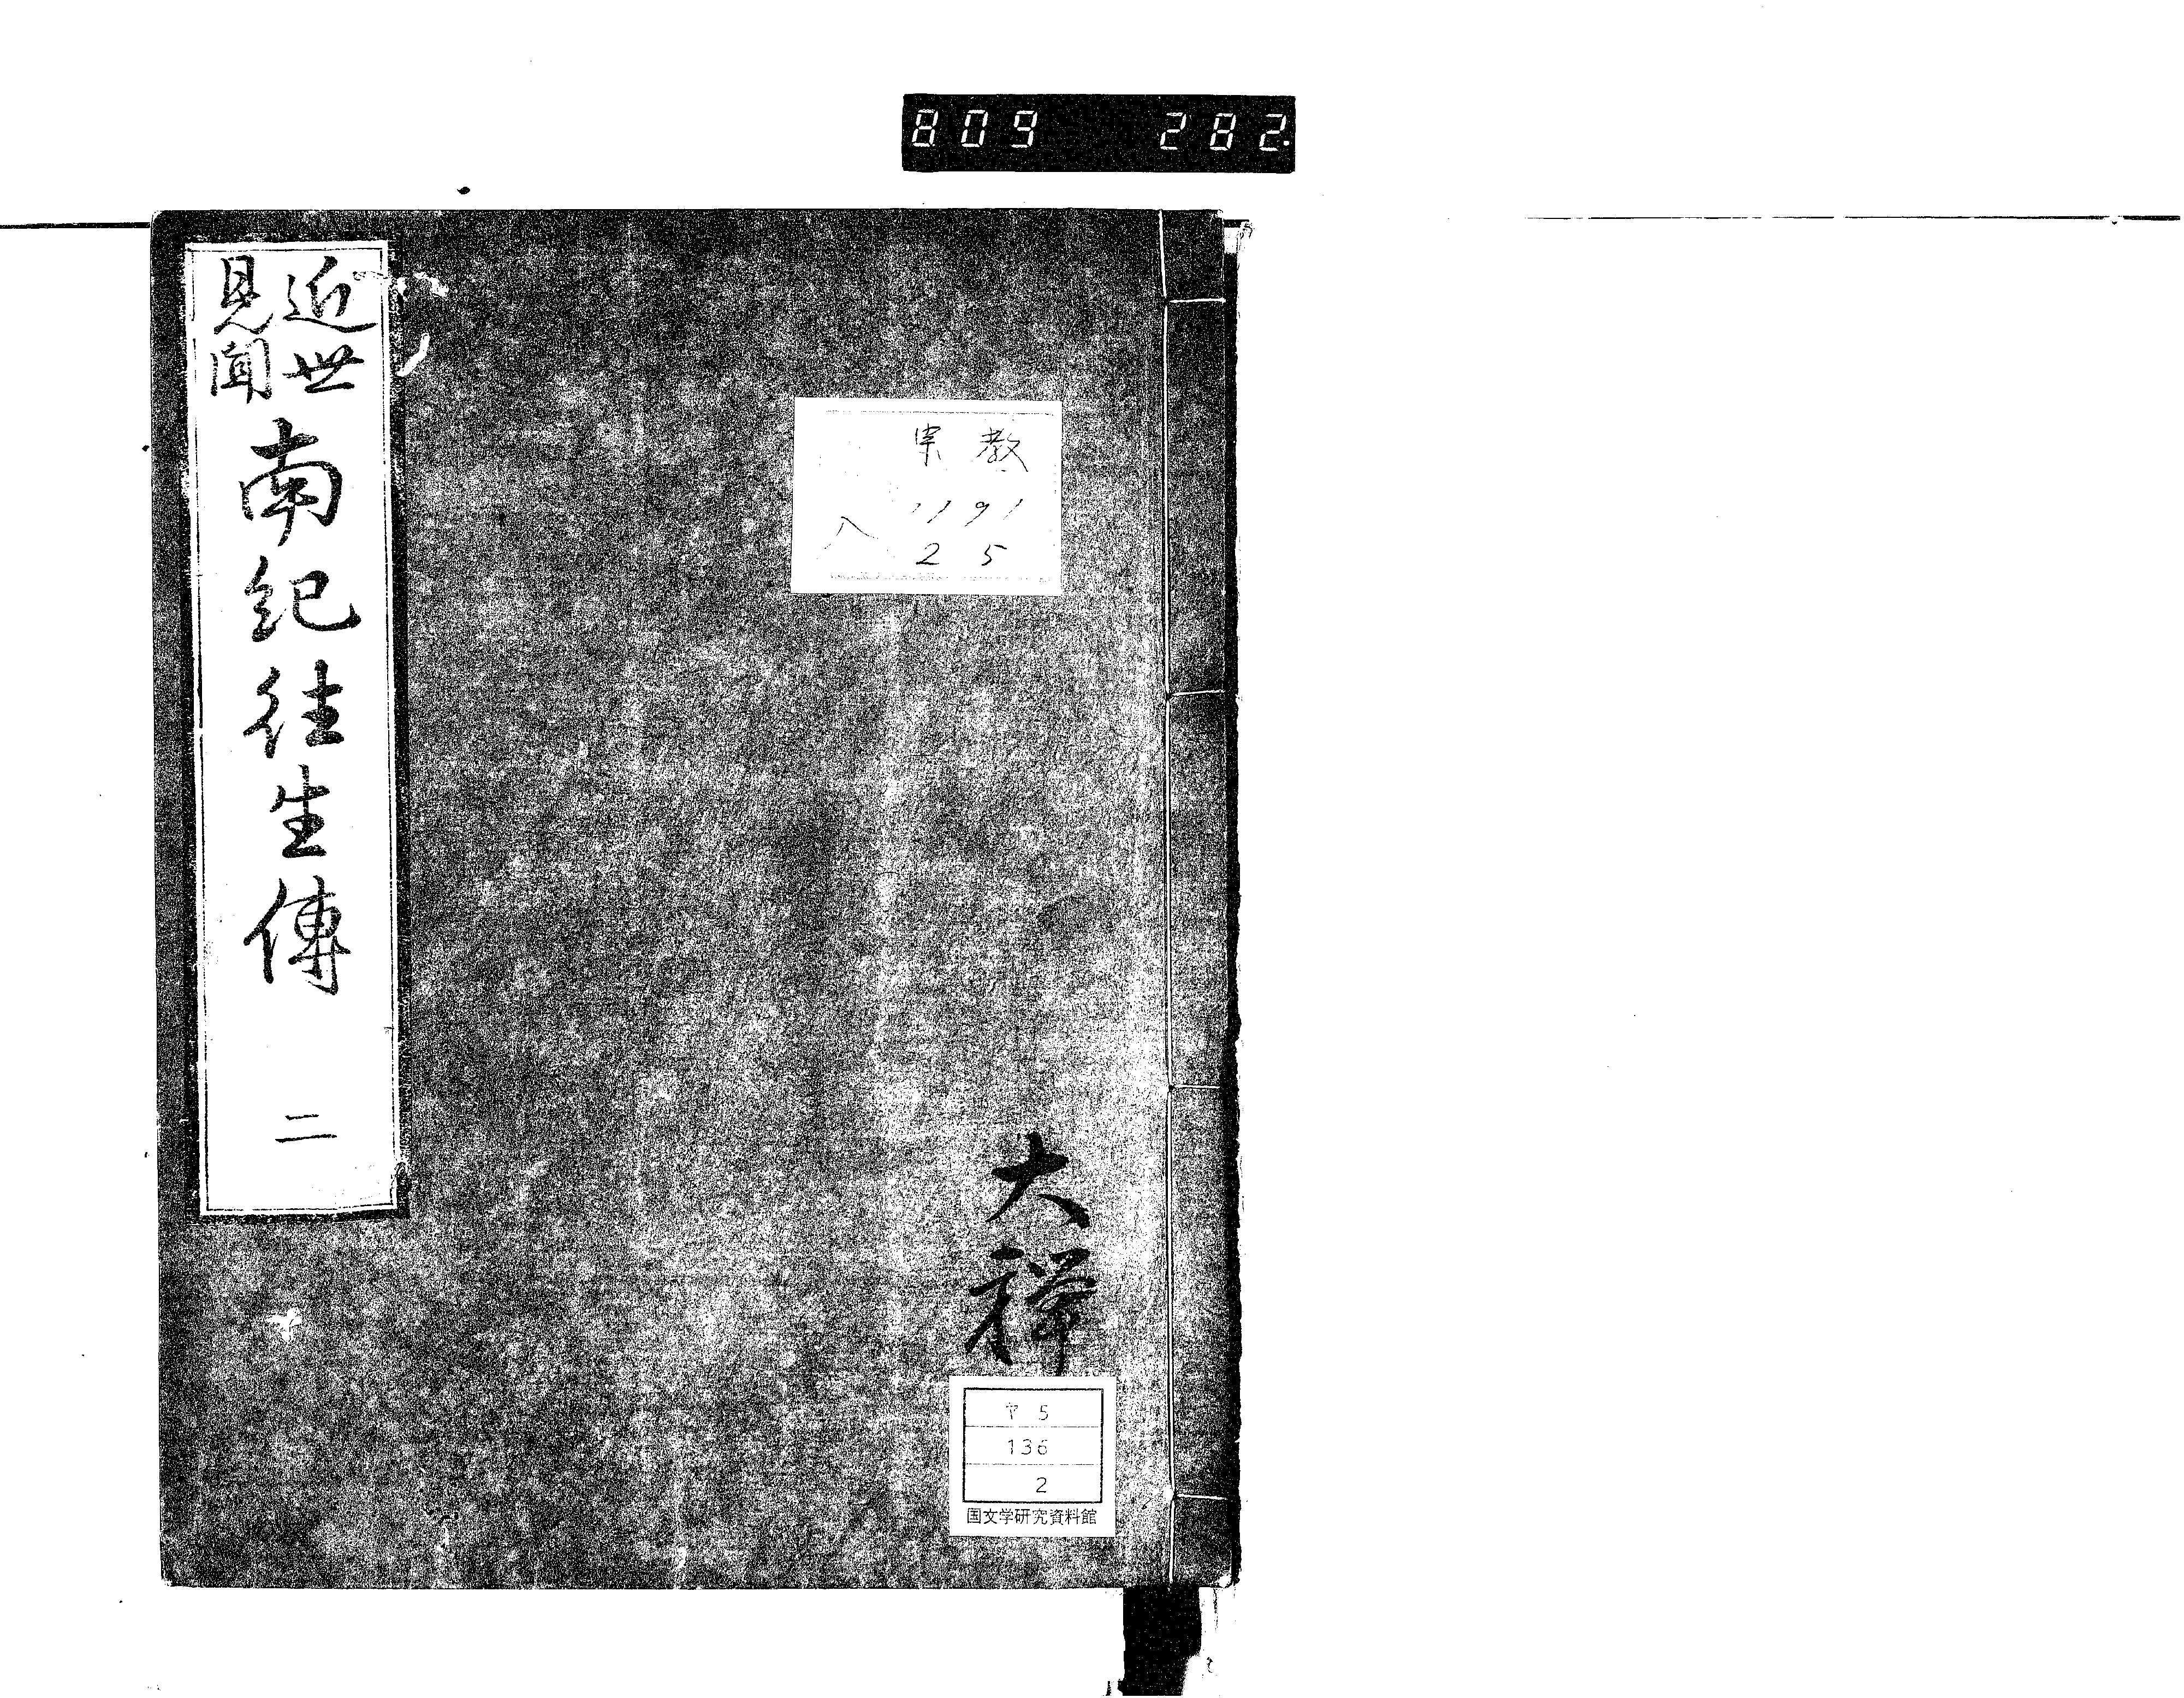 809 282
近世
見聞
南紀往生傳
二
宗教
1191
25
入
大禅
ヤ5
136
2
国文学研究資料館